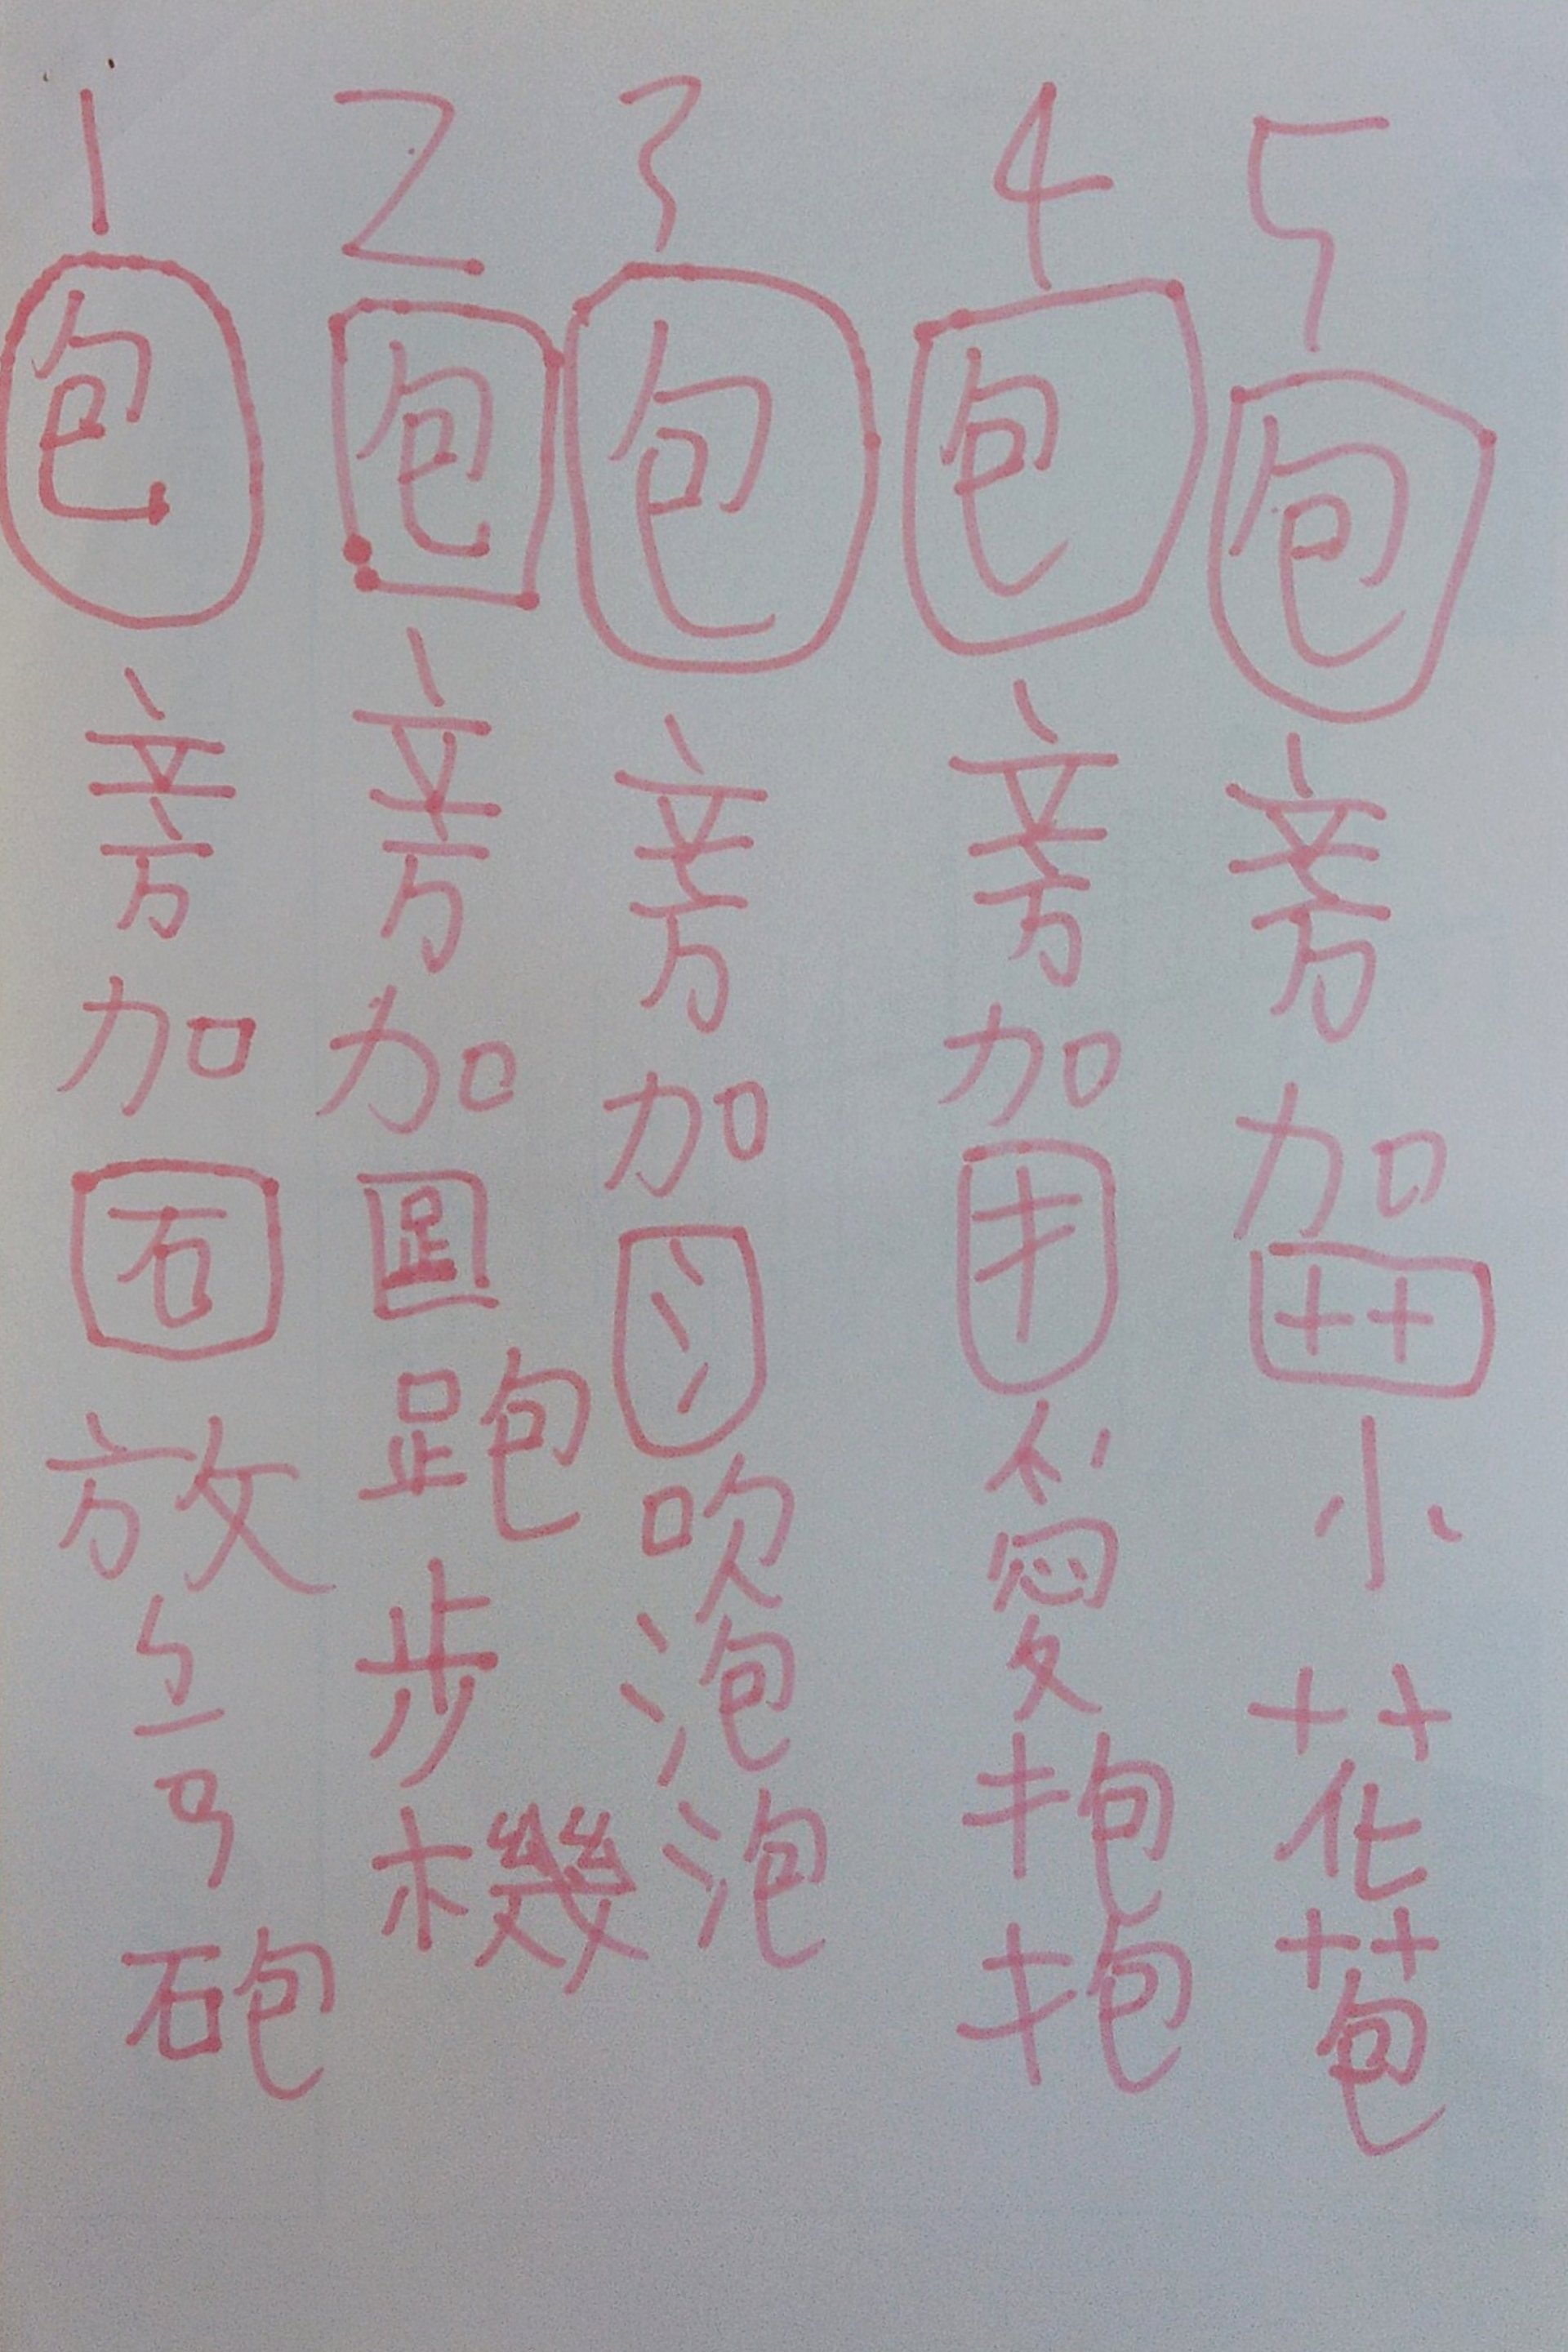 1
包旁加石放ㄅㄧㄢ砲
2
包旁加足跑步機
3
包旁加氵吹泡泡
4
包旁加扌愛抱抱
5
包旁加艹小花苞